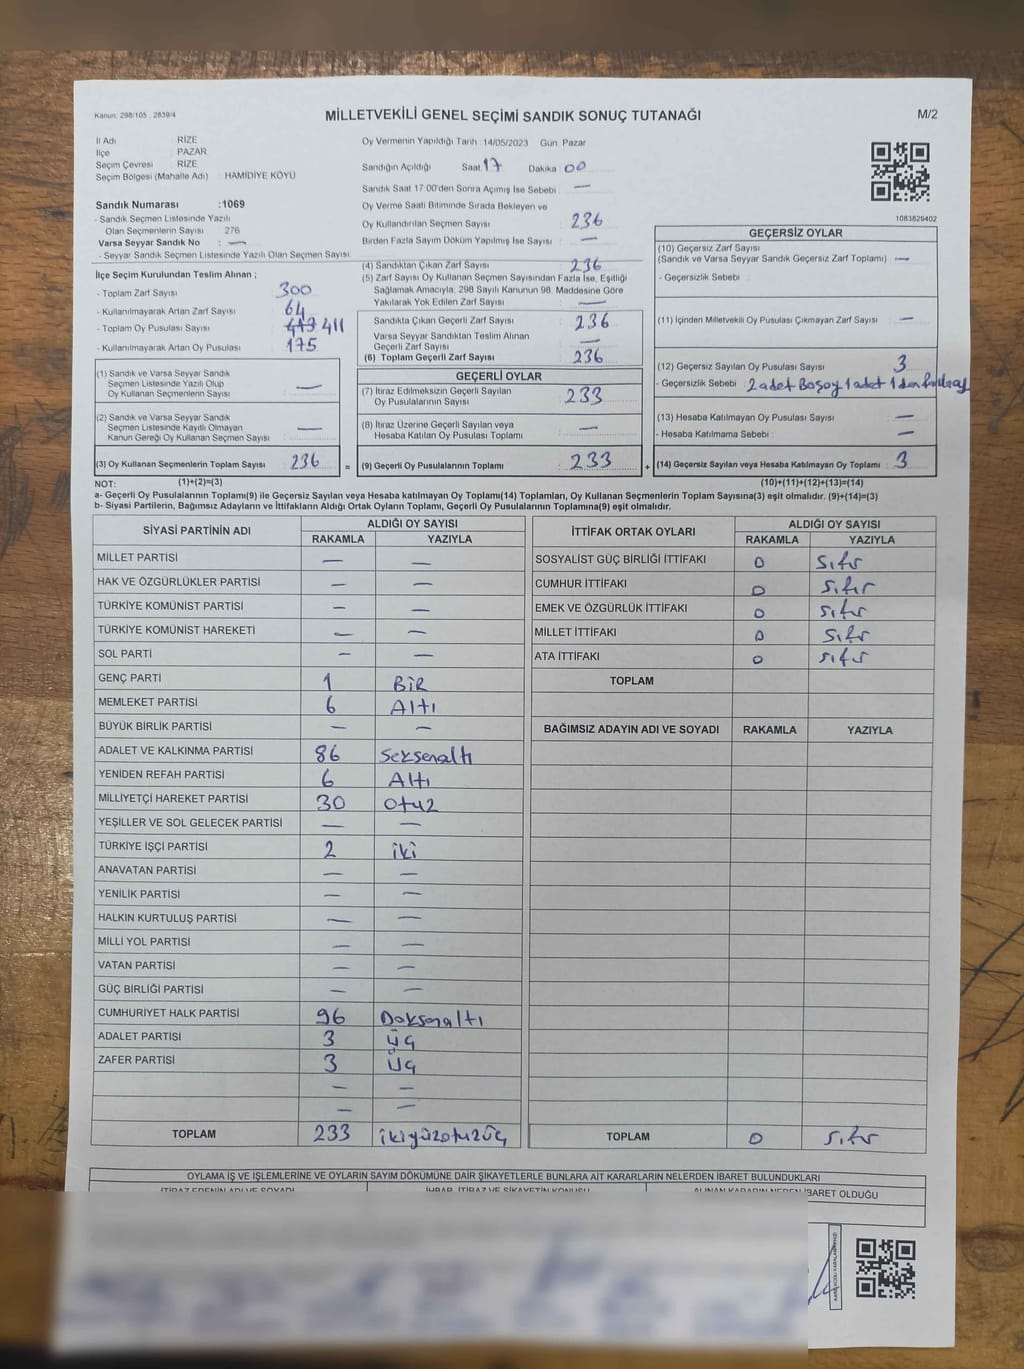 Kanun: 298/105 , 2839/4
MİLLETVEKİLİ GENEL SEÇİMİ SANDIK SONUÇ TUTANAĞI
M/2
İl Adı RİZE
İlçe PAZAR
Seçim Çevresi RİZE
Seçim Bölgesi (Mahalle Adı) HAMİDİYE KÖYÜ
Sandık Numarası :1069
- Sandık Seçmen Listesinde Yazılı
Olan Seçmenlerin Sayısı 276
Varsa Seyyar Sandık No : —
- Seyyar Sandık Seçmen Listesinde Yazılı Olan Seçmen Sayısı
İlçe Seçim Kurulundan Teslim Alınan ;
- Toplam Zarf Sayısı 300
- Kullanılmayarak Artan Zarf Sayısı 64
- Toplam Oy Pusulası Sayısı 413 411
- Kullanılmayarak Artan Oy Pusulası 175
(1) Sandık ve Varsa Seyyar Sandık
Seçmen Listesinde Yazılı Olup
Oy Kullanan Seçmenlerin Sayısı —
(2) Sandık ve Varsa Seyyar Sandık
Seçmen Listesinde Kayıtlı Olmayan —
Kanun Gereği Oy Kullanan Seçmen Sayısı
(3) Oy Kullanan Seçmenlerin Toplam Sayısı 236 =
Oy Vermenin Yapıldığı Tarih : 14/05/2023 Gün: Pazar
Sandığın Açıldığı Saat 17 Dakika 00
Sandık Saat 17:00'den Sonra Açımış İse Sebebi : —
Oy Verme Saati Bitiminde Sırada Bekleyen ve
Oy Kullandırılan Seçmen Sayısı 236
Birden Fazla Sayım Döküm Yapılmış İse Sayısı —
(4) Sandıktan Çıkan Zarf Sayısı 236
(5) Zarf Sayısı Oy Kullanan Seçmen Sayısından Fazla İse, Eşitliği
Sağlamak Amacıyla, 298 Sayılı Kanunun 98. Maddesine Göre
Yakılarak Yok Edilen Zarf Sayısı —
Sandıkta Çıkan Geçerli Zarf Sayısı 236
Varsa Seyyar Sandıktan Teslim Alınan
Geçerli Zarf Sayısı —
(6) Toplam Geçerli Zarf Sayısı 236
GEÇERLİ OYLAR
(7) İtiraz Edilmeksizin Geçerli Sayılan
Oy Pusulalarının Sayısı 233
(8) İtiraz Üzerine Geçerli Sayılan veya
Hesaba Katılan Oy Pusulası Toplamı —
(9) Geçerli Oy Pusulalarının Toplamı 233 +
1083829402
GEÇERSİZ OYLAR
(10) Geçersiz Zarf Sayısı
(Sandık ve Varsa Seyyar Sandık Geçersiz Zarf Toplamı) —
- Geçersizlik Sebebi :
(11) İçinden Milletvekili Oy Pusulası Çıkmayan Zarf Sayısı —
(12) Geçersiz Sayılan Oy Pusulası Sayısı 3
- Geçersizlik Sebebi : 2 adet Boşoy 1 adet 1 den
(13) Hesaba Katılmayan Oy Pusulası Sayısı —
- Hesaba Katılmama Sebebi : —
(14) Geçersiz Sayılan veya Hesaba Katılmayan Oy Toplamı 3
NOT: (1)+(2)=(3) (10)+(11)+(12)+(13)=(14)
a- Geçerli Oy Pusulalarının Toplamı(9) ile Geçersiz Sayılan veya Hesaba katılmayan Oy Toplamı(14) Toplamları, Oy Kullanan Seçmenlerin Toplam Sayısına(3) eşit olmalıdır. (9)+(14)=(3)
b- Siyasi Partilerin, Bağımsız Adayların ve İttifakların Aldığı Ortak Oyların Toplamı, Geçerli Oy Pusulalarının Toplamına(9) eşit olmalıdır.
SİYASİ PARTİNİN ADI ALDIĞI OY SAYISI
RAKAMLA YAZIYLA
MİLLET PARTİSİ — —
HAK VE ÖZGÜRLÜKLER PARTİSİ — —
TÜRKİYE KOMÜNİST PARTİSİ — —
TÜRKİYE KOMÜNİST HAREKETİ — —
SOL PARTİ — —
GENÇ PARTİ 1 BİR
MEMLEKET PARTİSİ 6 Altı
BÜYÜK BİRLİK PARTİSİ — —
ADALET VE KALKINMA PARTİSİ 86 Seksenaltı
YENİDEN REFAH PARTİSİ 6 Altı
MİLLİYETÇİ HAREKET PARTİSİ 30 otuz
YEŞİLLER VE SOL GELECEK PARTİSİ — —
TÜRKİYE İŞÇİ PARTİSİ 2 iki
ANAVATAN PARTİSİ — —
YENİLİK PARTİSİ — —
HALKIN KURTULUŞ PARTİSİ — —
MİLLİ YOL PARTİSİ — —
VATAN PARTİSİ — —
GÜÇ BİRLİĞİ PARTİSİ — —
CUMHURİYET HALK PARTİSİ 96 Doksanaltı
ADALET PARTİSİ 3 üç
ZAFER PARTİSİ 3 üç
— —
— —
TOPLAM 233 ikiyüzotuzüç
İTTİFAK ORTAK OYLARI ALDIĞI OY SAYISI
RAKAMLA YAZIYLA
SOSYALİST GÜÇ BİRLİĞİ İTTİFAKI 0 Sıfır
CUMHUR İTTİFAKI 0 Sıfır
EMEK VE ÖZGÜRLÜK İTTİFAKI 0 Sıfır
MİLLET İTTİFAKI 0 Sıfır
ATA İTTİFAKI 0 Sıfır
TOPLAM
BAĞIMSIZ ADAYIN ADI VE SOYADI RAKAMLA YAZIYLA
TOPLAM 0 Sıfır
OYLAMA İŞ VE İŞLEMLERİNE VE OYLARIN SAYIM DÖKÜMÜNE DAİR ŞİKAYETLERLE BUNLARA AİT KARARLARIN NELERDEN İBARET BULUNDUKLARI
İTİRAZ EDENİN ADI VE SOYADI İHBAR, İTİRAZ VE ŞİKAYETİN KONUSU ALINAN KARARIN NEDEN İBARET OLDUĞU